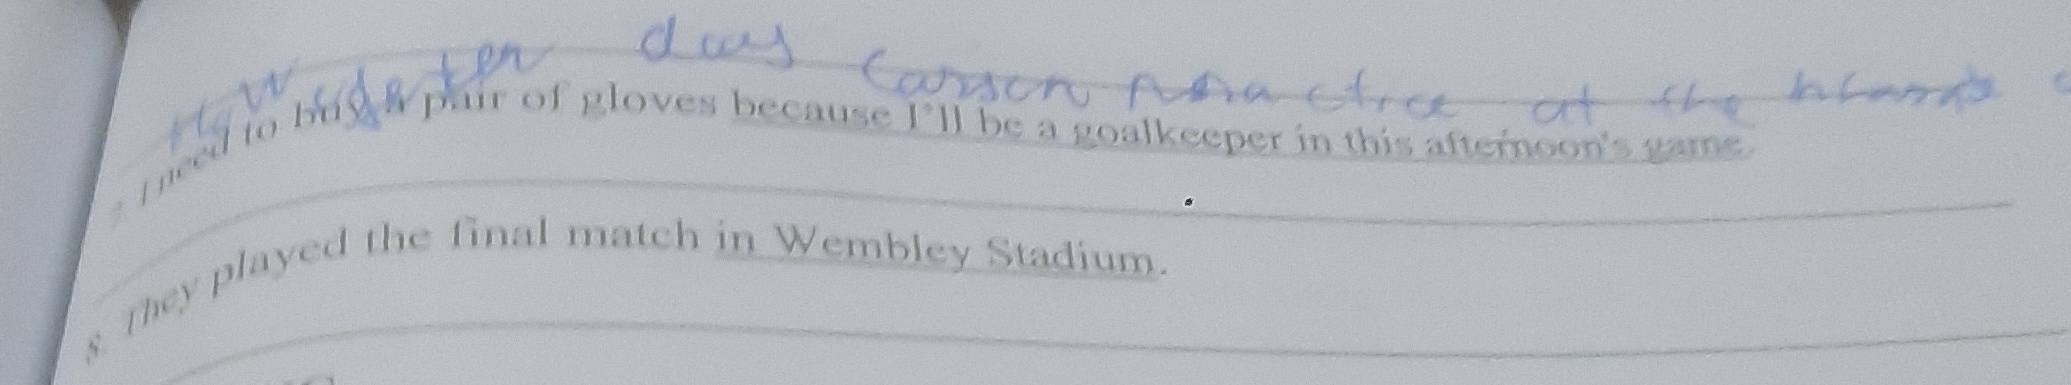 How often days Carson practice at the
I need to buy a pair of gloves because I'll be a goalkeeper in this afternoon's game.
8. They played the final match in Wembley Stadium.